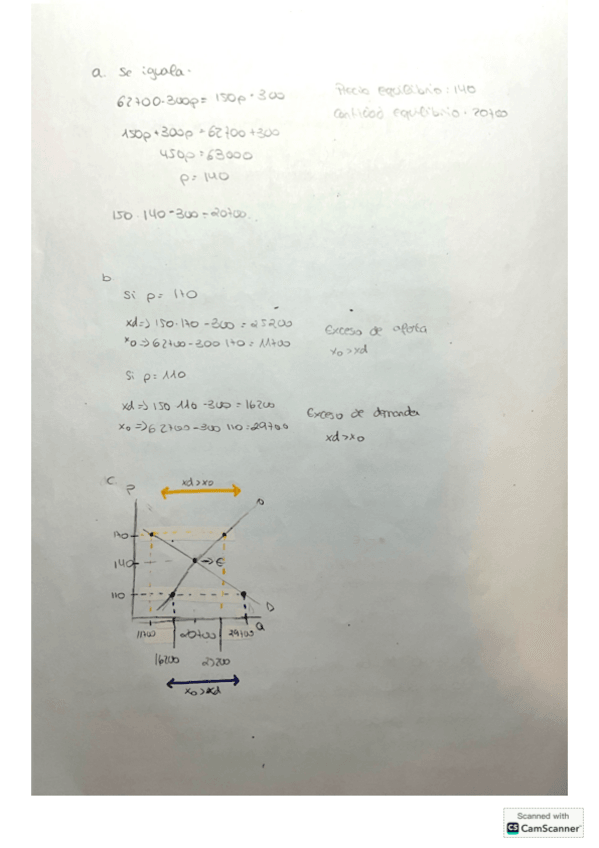 a. Se iguala.
62700-300p = 150p - 300
150p + 300p = 62700 + 300
450p = 63000
p = 140
150 · 140 - 300 = 20700
Precio equilibrio: 140
Cantidad equilibrio: 20700
b
Si p = 170
xd => 150·170 - 300 = 25200
xo => 62700 - 300 170 = 11700
Exceso de oferta
xo > xd
Si p = 110
xd => 150 110 - 300 = 16200
xo => 62700 - 300 110 = 29700
Exceso de demanda
xd > xo
c.
P
xd > xo
170
140
110
E
O
D
Q
11700
20700
29700
16200
25200
xo > xd
Scanned with
CS CamScanner